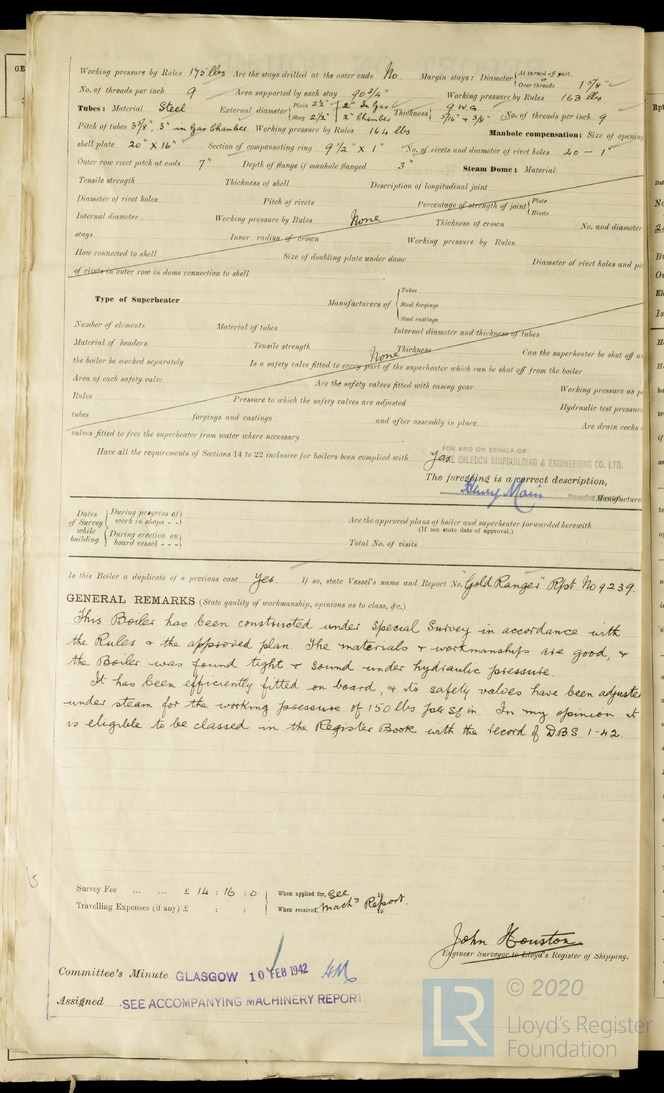 Working pressure by Rules 175 lbs Are the stays drilled at the outer ends No. Margin stays: Diameter { At turned off part, or Over threads 1 5/8"
No. of threads per inch 9 Area supported by each stay 90 3/4" Working pressure by Rules 163 lbs
Tubes: Material Steel External diameter { Plain 2 1/2" Stay 2 1/2" } 2" In Gas 2" Chamber Thickness { 9 W.G. 5/16" & 3/8" No. of threads per inch 9
Pitch of tubes 3 5/8", 3" in Gas Chamber Working pressure by Rules 164 lbs Manhole compensation: Size of opening
shell plate 20" x 16" Section of compensating ring 9 1/2" x 1" No. of rivets and diameter of rivet holes 40 - 1"
Outer row rivet pitch at ends 7" Depth of flange if manhole flanged 3" Steam Dome: Material
Tensile strength Thickness of shell Description of longitudinal joint
Diameter of rivet holes Pitch of rivets Percentage of strength of joint { Plate Rivets
Internal diameter Working pressure by Rules None Thickness of crown No. and diameter
stays Inner radius of crown Working pressure by Rules
How connected to shell Size of doubling plate under dome Diameter of rivet holes and
of rivets in outer row in dome connection to shell
Type of Superheater Manufacturers of { Tubes Steel forgings Steel castings
Number of elements Material of tubes Internal diameter and thickness of tubes
Material of headers Tensile strength None Thickness Can the superheater be shut off
the boiler be worked separately Is a safety valve fitted to every part of the superheater which can be shut off from the boiler
Area of each safety valve Are the safety valves fitted with easing gear Working pressure as
Rules Pressure to which the safety valves are adjusted Hydraulic test pressure
tubes forgings and castings and after assembly in place Are drain cocks
valves fitted to free the superheater from water where necessary
Have all the requirements of Sections 14 to 22 inclusive for boilers been complied with Yes
FOR AND ON BEHALF OF
THE CALEDON SHIPBUILDING & ENGINEERING CO. LTD.
The foregoing is a correct description,
Henry Main Manufacturer
Dates of Survey while building { During progress of work in shops - - During erection on board vessel - - -
Are the approved plans of boiler and superheater forwarded herewith
(If not state date of approval.)
Total No. of visits
Is this Boiler a duplicate of a previous case Yes. If so, state Vessel's name and Report No. "Gold Ranger" Rpt. No 9239.
GENERAL REMARKS (State quality of workmanship, opinions as to class, &c.)
This Boiler has been constructed under Special Survey in accordance with
the Rules & the approved plan. The materials & workmanships are good, &
the Boiler was found tight & sound under hydraulic pressure.
It has been efficiently fitted on board, & its safety valves have been adjusted
under steam for the working pressure of 150 lbs per sq in. In my opinion it
is eligible to be classed in the Register Book with the record of DBS 1-42.
Survey Fee ... ... £ 14 : 16 : 0 When applied for, See
Travelling Expenses (if any) £ : : When received, Machy Report.
John Houston
Engineer Surveyor to Lloyd's Register of Shipping.
Committee's Minute GLASGOW 10 FEB 1942
Assigned SEE ACCOMPANYING MACHINERY REPORT.
LR © 2020
Lloyd's Register
Foundation